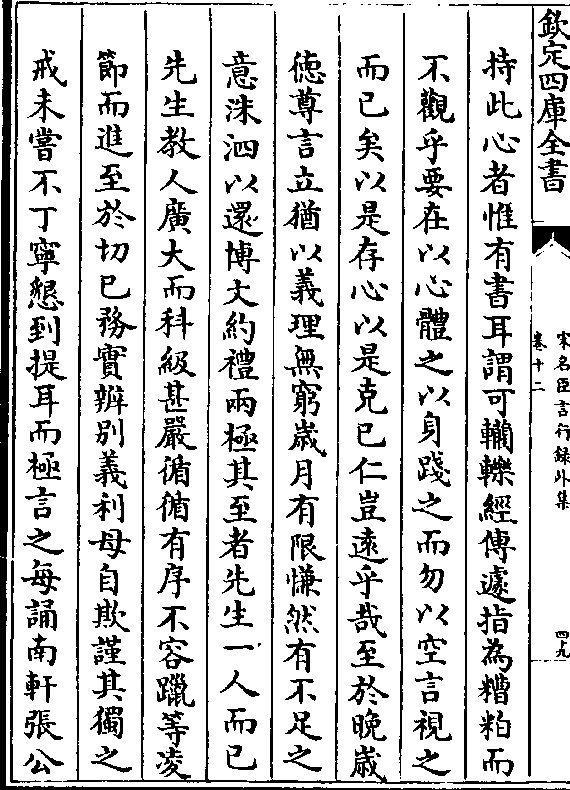 欽定四庫全書
宋名臣言行録外集
卷十二
四九
持此心者惟有書耳謂可轥轢經傳遽指為糟粕而
不觀乎要在以心體之以身踐之而勿以空言視之
而已矣以是存心以是克已仁豈逺乎哉至於晚歳
徳尊言立猶以義理無窮歳月有限慊然有不足之
意洙泗以還博文約禮兩極其至者先生一人而已
先生教人廣大而科級甚嚴循循有序不容躐等凌
節而進至於切已務實辨别義利毋自欺謹其獨之
戒未嘗不丁寧懇到提耳而極言之每誦南軒張公